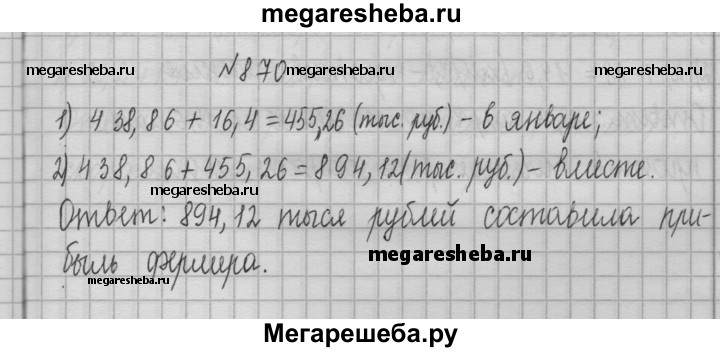 megaresheba.ru
№870
megaresheba.ru megaresheba.ru megaresheba.ru
1) 438,86 + 16,4 = 455,26 (тыс. руб.) - в январе;
2) 438,86 + 455,26 = 894,12 (тыс. руб.) - вместе.
megaresheba.ru
Ответ: 894,12 тыся рублей составила при-
быль фермера.
megaresheba.ru
megaresheba.ru
Мегарешеба.ру